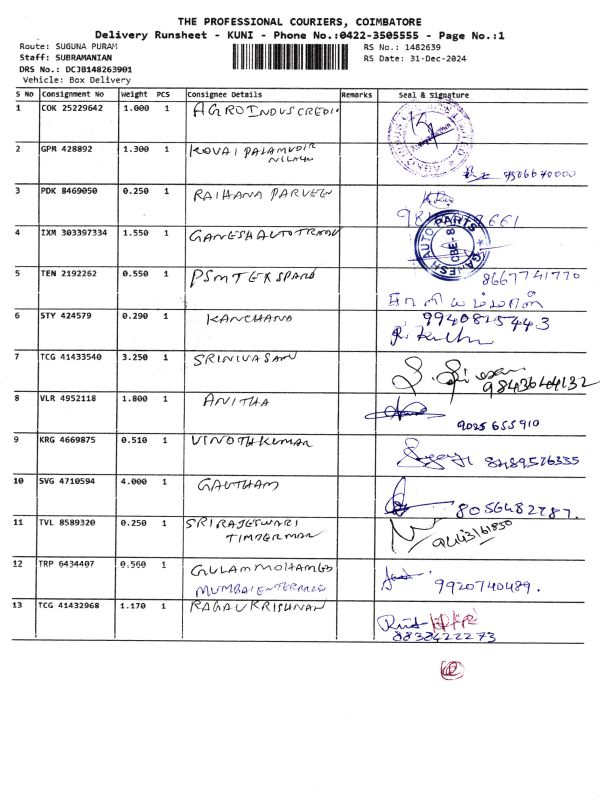 THE PROFESSIONAL COURIERS, COIMBATORE
Delivery Runsheet - KUNI - Phone No.:0422-3505555 - Page No.:1
Route: SUGUNA PURAM RS No.: 1482639
Staff: SUBRAMANIAN RS Date: 31-Dec-2024
DRS No.: DCJB148263901
Vehicle: Box Delivery
S No Consignment No Weight PCS Consignee Details Remarks Seal & Signature
1 COK 25229642 1.000 1 AGROINDUSCREDI
2 GPM 428892 1.300 1 KOVAI PALAMUDIR
NILAYM
7506670000
3 PDK 8469050 0.250 1 RAIHANA PARVEEN
661
4 IXM 303397334 1.550 1 GANESH AUTO
GANESH AUTO PARTS CBE-8
5 TEN 2192262 0.550 1 PSMTEXSPARS 8667741770
6 STY 424579 0.290 1 KANCHANA 9940825443
7 TCG 41433540 3.250 1 SRINIVASAN
9843644132
8 VLR 4952118 1.800 1 ANITHA
9025 655 910
9 KRG 4669875 0.510 1 VINOTHKUMAR
8489576335
10 SVG 4710594 4.000 1 GAUTHAM
8056482787.
11 TVL 8589320 0.250 1 SRIRAJESWARI
TIMBERMAR
9443161850
12 TRP 6434407 0.560 1 GULAMMOHAMED
MUMBAI 9920740489.
13 TCG 41432968 1.170 1 RAGAVKRISHNAN
8838422273